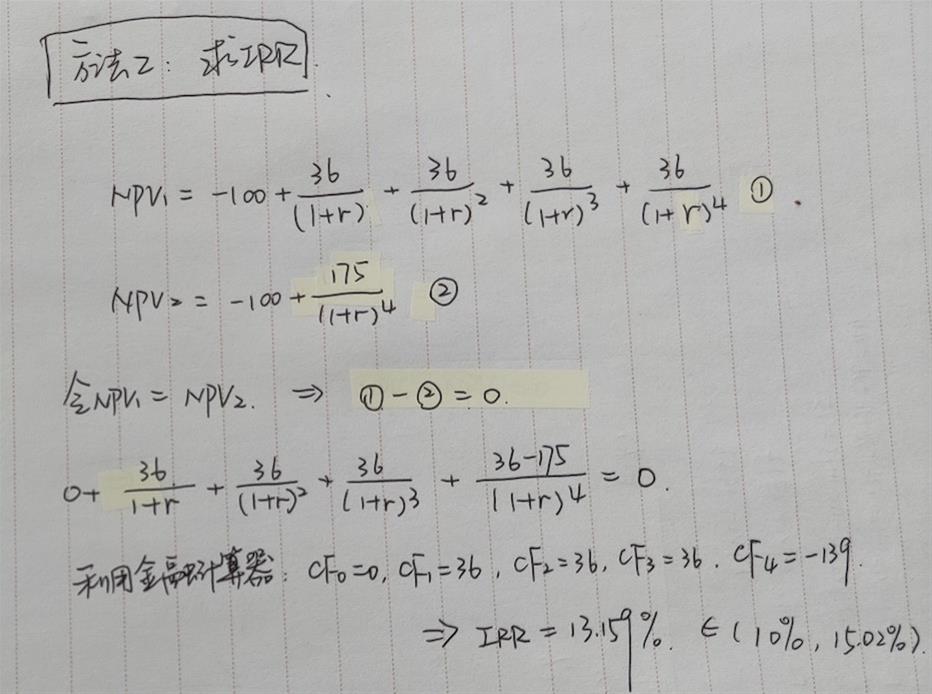 方法2: 求IRR.
NPV₁ = -100 + 36/(1+r) + 36/(1+r)² + 36/(1+r)³ + 36/(1+r)⁴ ①.
NPV₂ = -100 + 175/(1+r)⁴ ②
令NPV₁ = NPV₂. ⇒ ① - ② = 0.
0 + 36/1+r + 36/(1+r)² + 36/(1+r)³ + 36-175/(1+r)⁴ = 0.
利用金融计算器: CF₀=0, CF₁=36, CF₂=36, CF₃=36. CF₄=-139.
⇒ IRR = 13.159%. ∈ (10%, 15.02%).